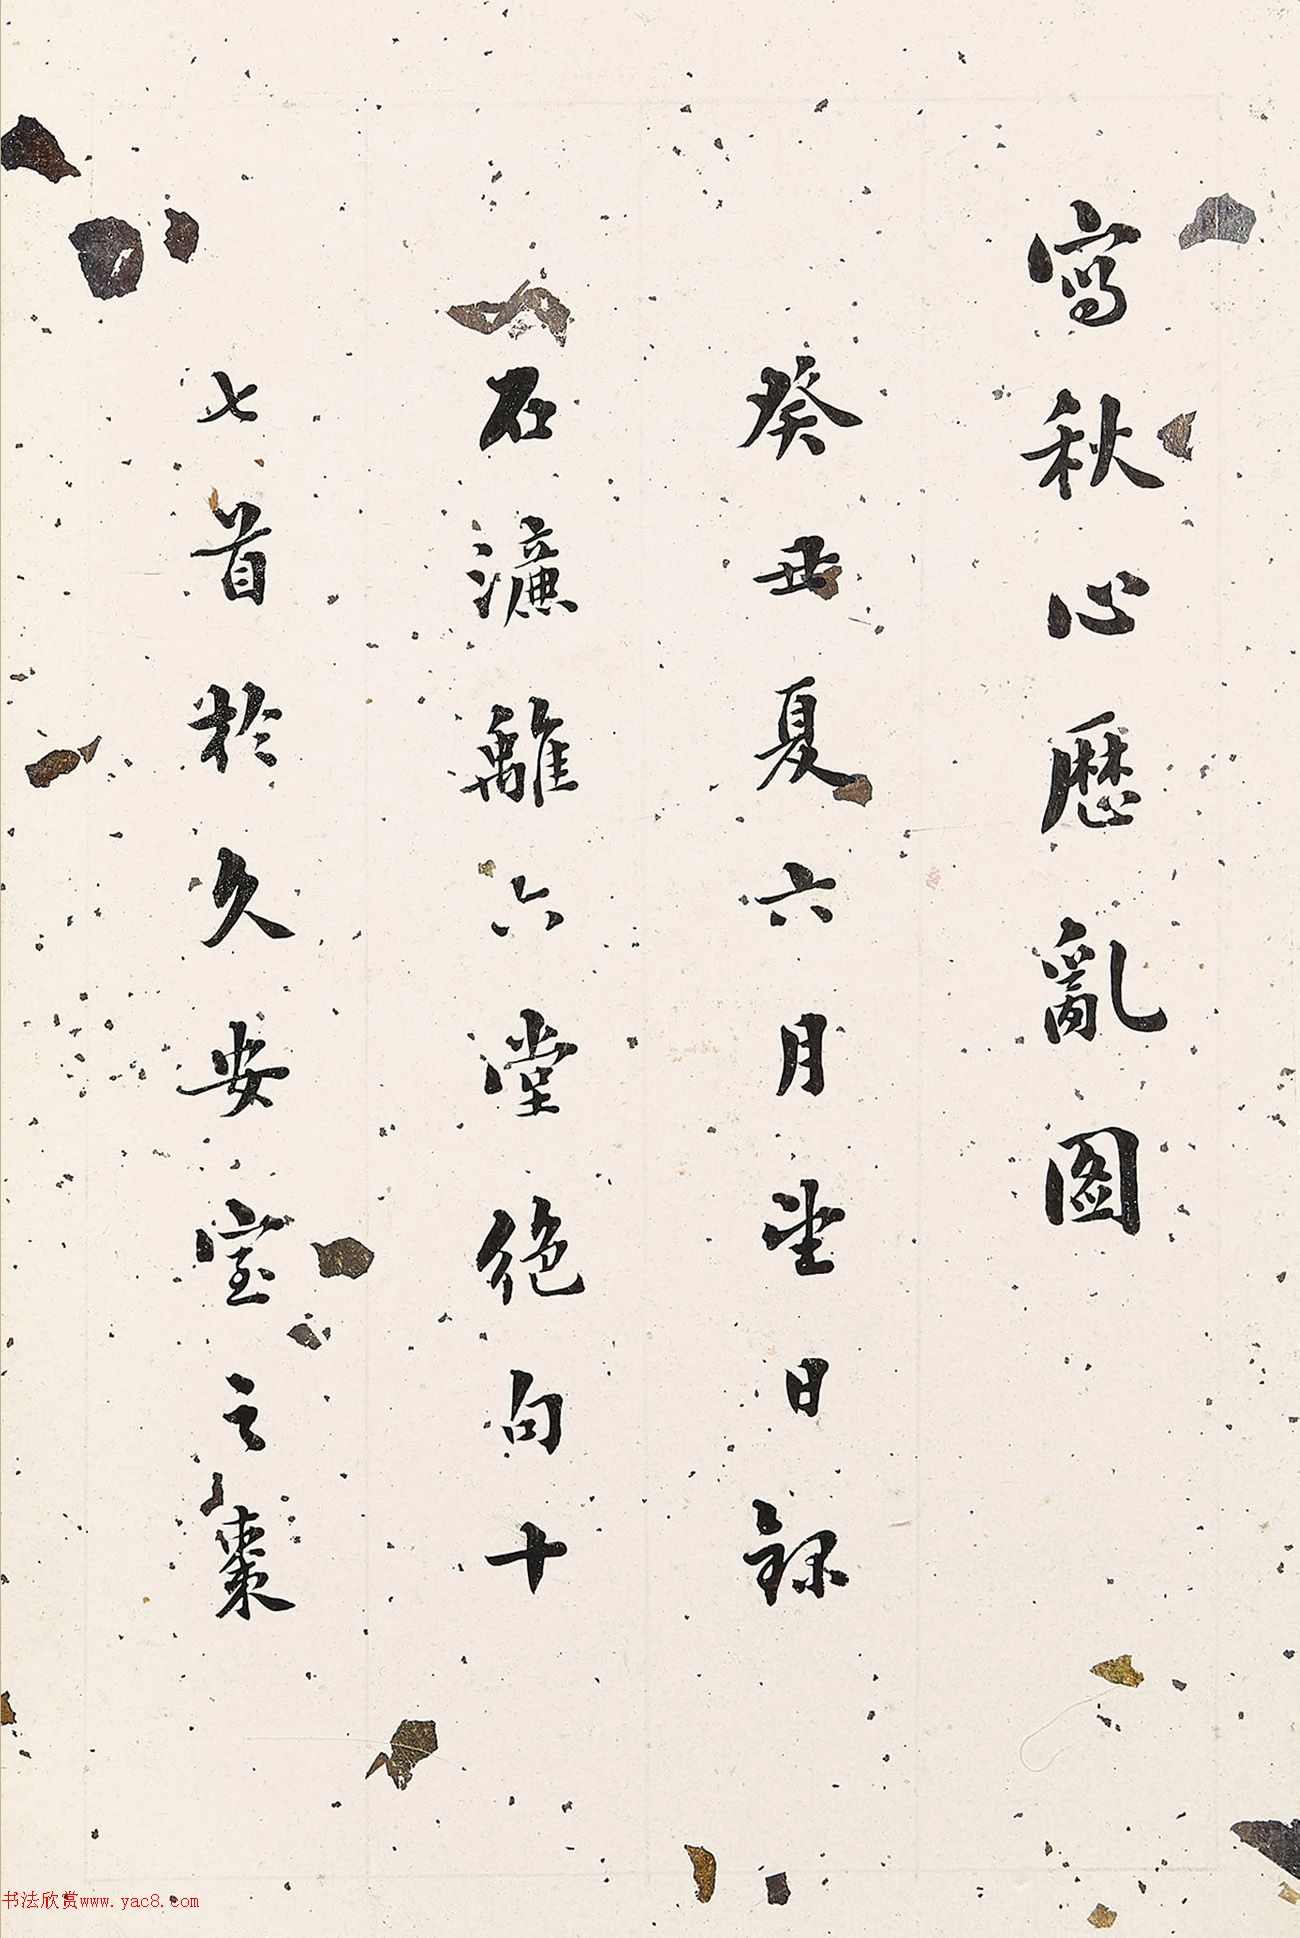 寫秋心歷亂圖
癸丑夏六月望日録
石濂離六堂絕句十
七首於久安室之棗
书法欣赏www.yac8.com